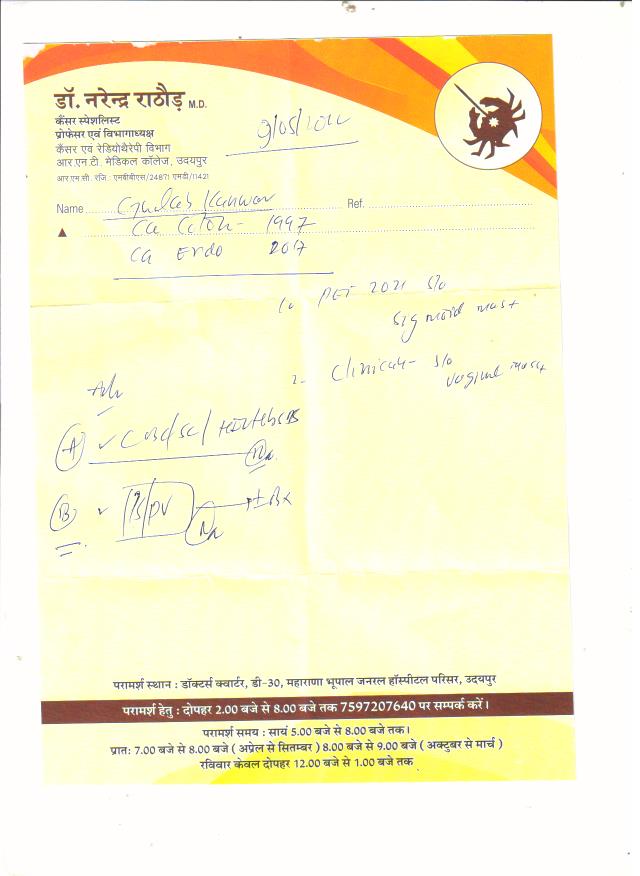 डॉ. नरेन्द्र राठौड़ M.D.
कैंसर स्पेशलिस्ट
प्रोफेसर एवं विभागाध्यक्ष
कैंसर एवं रेडियोथैरेपी विभाग
आर.एन.टी. मेडिकल कॉलेज, उदयपुर
आर.एम.सी. रजि.: एमबीबीएस/24871 एमडी/11421
9/05/2022
Name Gulab Kanwar Ref.
Ca Colon - 1997
Ca Endo 2017
1. PET 2021 S/o
Sigmoid mass
2- Clinically - S/o
vaginal mass
Adv
A CBC/SC/HIV/HbsAg
B PS/PV ± Bx
परामर्श स्थान : डॉक्टर्स क्वार्टर, डी-30, महाराणा भूपाल जनरल हॉस्पीटल परिसर, उदयपुर
परामर्श हेतु : दोपहर 2.00 बजे से 8.00 बजे तक 7597207640 पर सम्पर्क करें।
परामर्श समय : सायं 5.00 से 8.00 बजे तक।
प्रातः 7.00 बजे से 8.00 बजे ( अप्रेल से सितम्बर ) 8.00 बजे से 9.00 बजे ( अक्टुबर से मार्च )
रविवार केवल दोपहर 12.00 बजे से 1.00 बजे तक